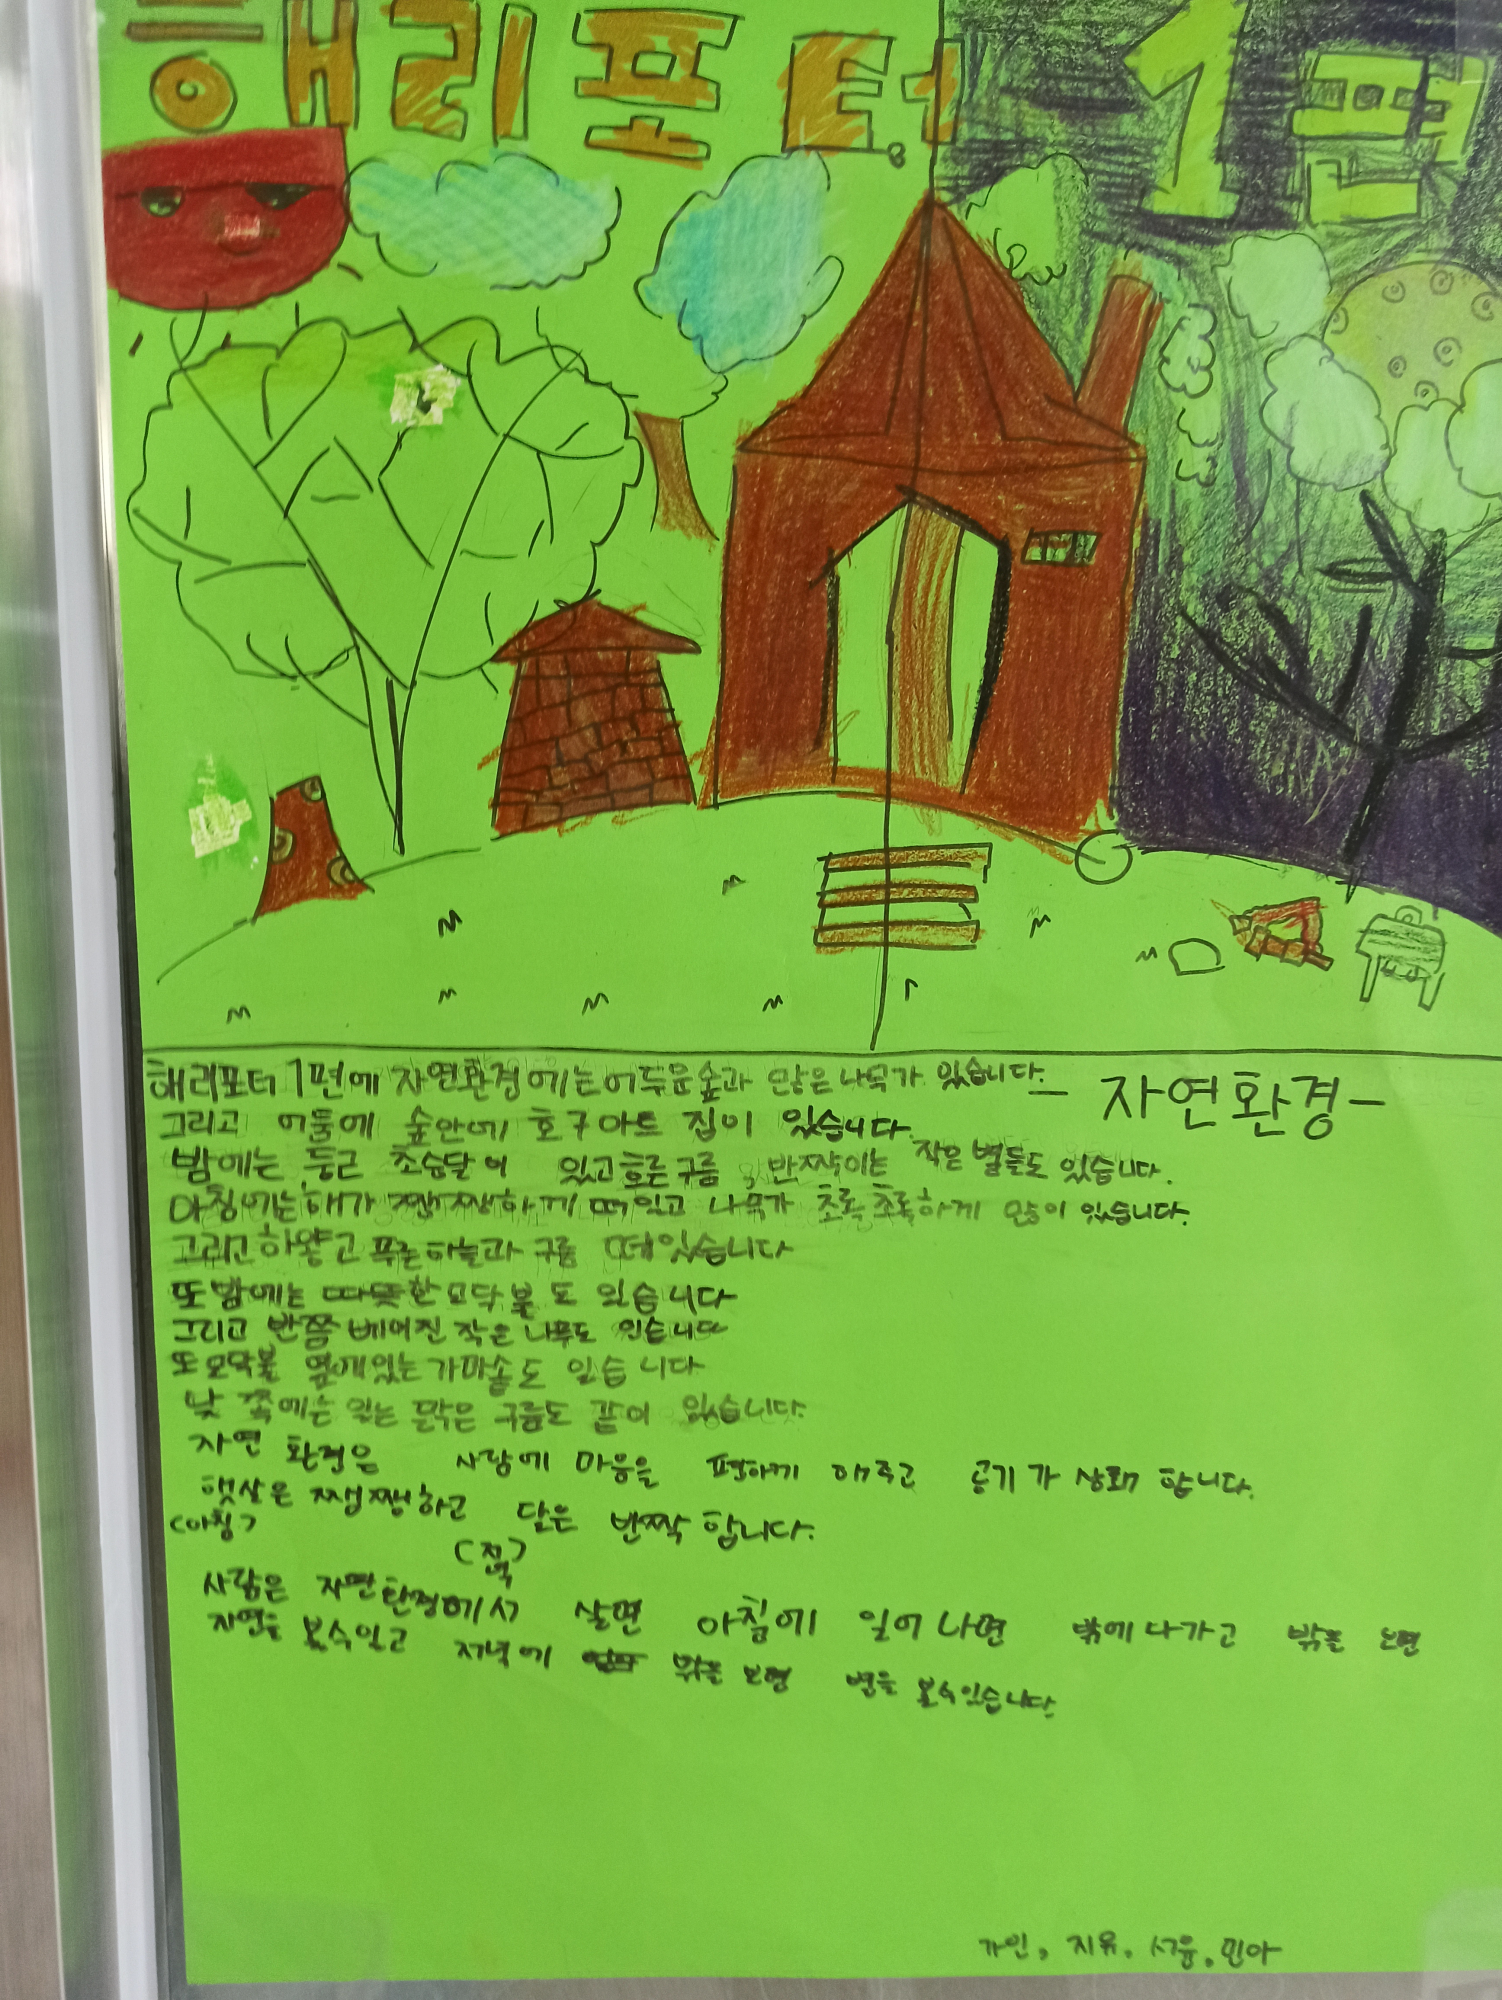 해리포터 1편
해리포터 1편에 자연환경에는 어두운 숲과 많은 나무가 있습니다.
-자연환경-
그리고 어둠에 숲안에 호구아트 집이 있습니다.
밤에는 둥근 초승달이 있고 흐른 구름, 반짝이는 작은 별들도 있습니다.
아침에는 해가 쨍쨍하게 떠있고 나무가 초록초록하게 많이 있습니다.
그리고 하얗고 푸른하늘과 구름 떼있습니다
또 밤에는 따뜻한 모닥불도 있습니다
그리고 반쯤 베어진 작은 나무도 있습니다
또 모닥불 옆에있는 가마솥도 있습니다
낮 쪽에는 있는 맑은 구름도 같이 있습니다.
자연 환경은 사람에 마음을 편하게 해주고 공기가 상쾌 합니다.
햇살은 쨍쨍하고 달은 반짝 합니다.
(아침)
사람은 자연환경에서 살면 아침에 일어나면 밖에 나가고 밖을 보면
자연을 볼수있고 저녁에 밖을 보면 별을 볼수있습니다
가인, 지유, 서윤, 민아